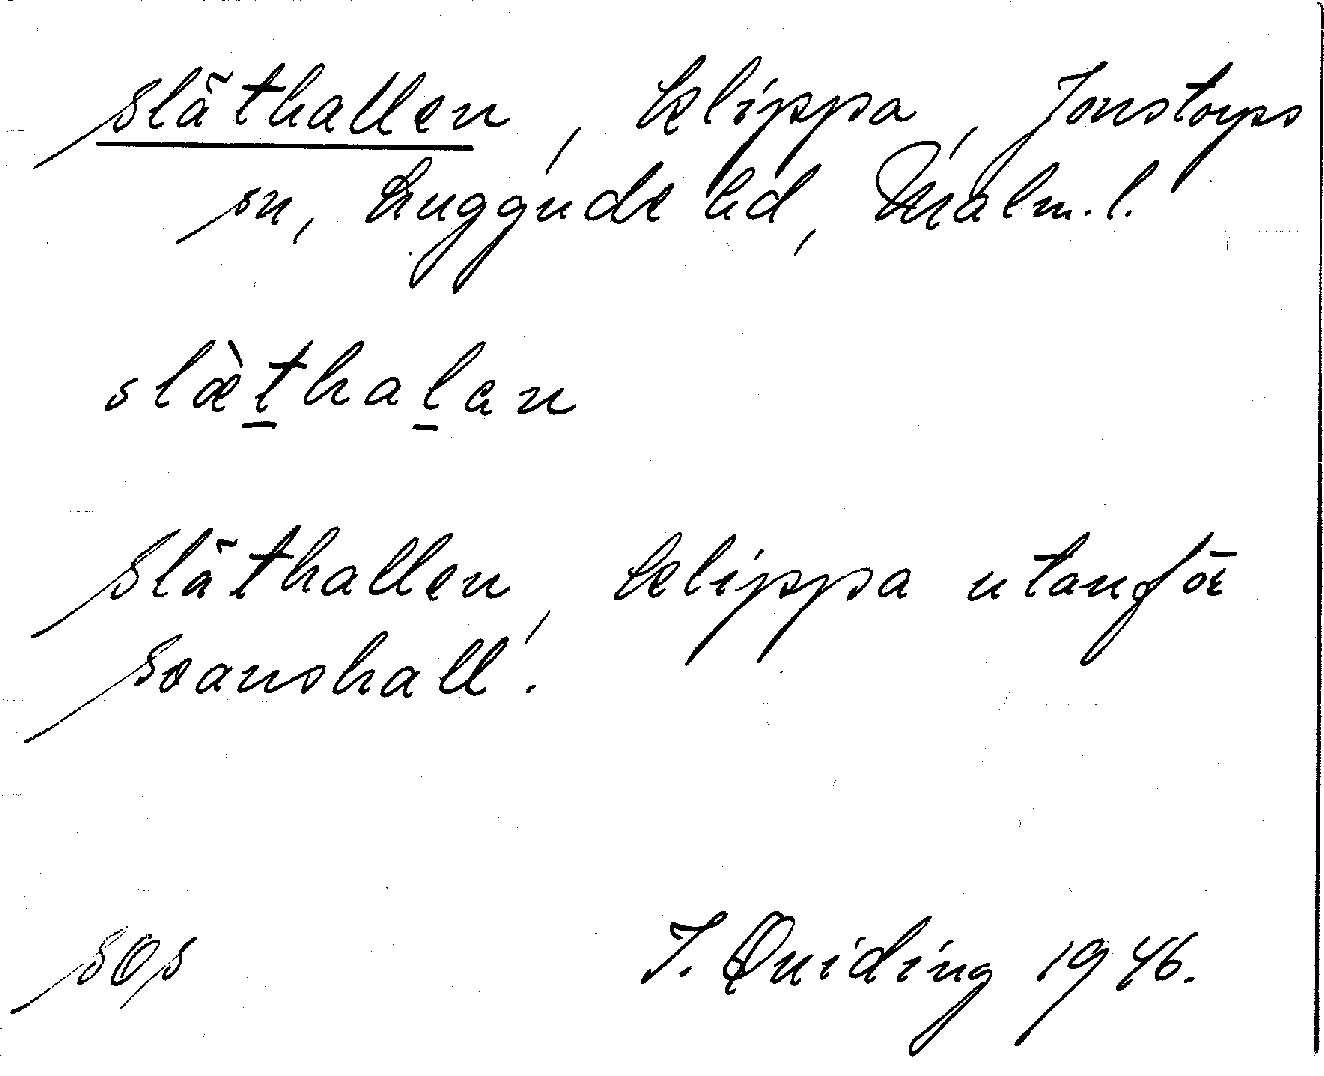 Släthallen, klippa, Jonstorps
sn, Luggude hd, Malm. l.
slæ̀ṯhaḻan
Släthallen, klippa utanför
Svanshall.
SOS J. Quiding 1946.